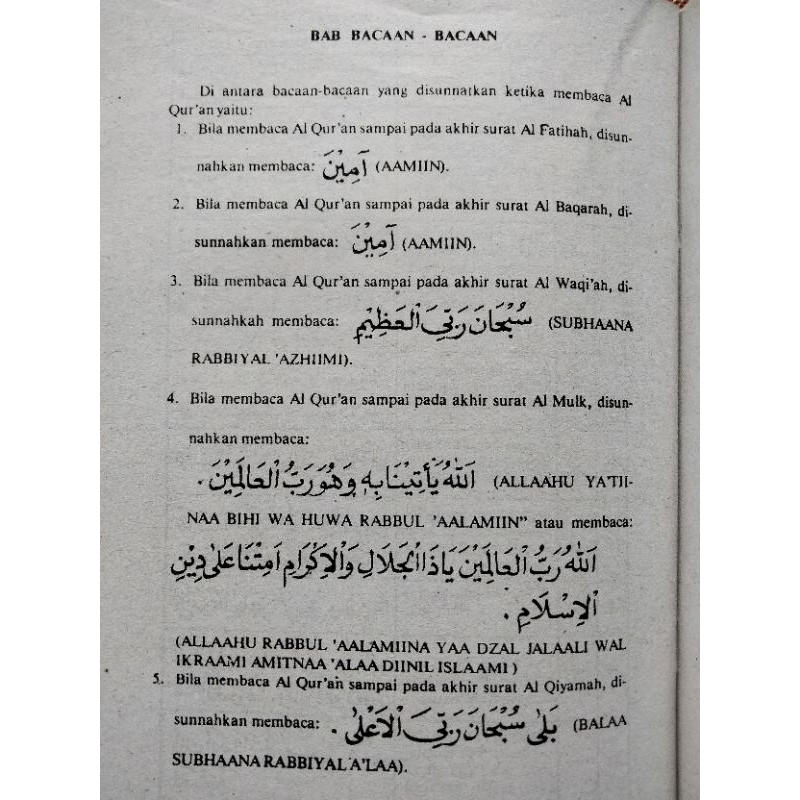 BAB BACAAN - BACAAN
Di antara bacaan-bacaan yang disunnatkan ketika membaca Al
Qur'an yaitu:
1. Bila membaca Al Qur'an sampai pada akhir surat Al Fatihah, disun-
nahkan membaca: آمِيْنَ (AAMIIN).
2. Bila membaca Al Qur'an sampai pada akhir surat Al Baqarah, di-
sunnahkan membaca: آمِيْنَ (AAMIIN).
3. Bila membaca Al Qur'an sampai pada akhir surat Al Waqi'ah, di-
sunnahkah membaca: سُبْحَانَ رَبِّيَ الْعَظِيْمِ (SUBHAANA
RABBIYAL 'AZHIIMI).
4. Bila membaca Al Qur'an sampai pada akhir surat Al Mulk, disun-
nahkan membaca:
اَللّٰهُ يَأْتِيْنَا بِهِ وَهُوَ رَبُّ الْعَالَمِيْنَ . (ALLAAHU YA'TII-
NAA BIHI WA HUWA RABBUL 'AALAMIIN" atau membaca:
اَللّٰهُ رَبُّ الْعَالَمِيْنَ يَاذَا الْجَلَالِ وَالْاِكْرَامِ اَمِتْنَا عَلٰى دِيْنِ
الْاِسْلَامِ .
(ALLAAHU RABBUL 'AALAMIINA YAA DZAL JALAALI WAL
IKRAAMI AMITNAA 'ALAA DIINIL ISLAAMI )
5. Bila membaca Al Qur'an sampai pada akhir surat Al Qiyamah, di-
sunnahkan membaca: بَلٰى سُبْحَانَ رَبِّيَ الْاَعْلٰى . (BALAA
SUBHAANA RABBIYAL A'LAA).